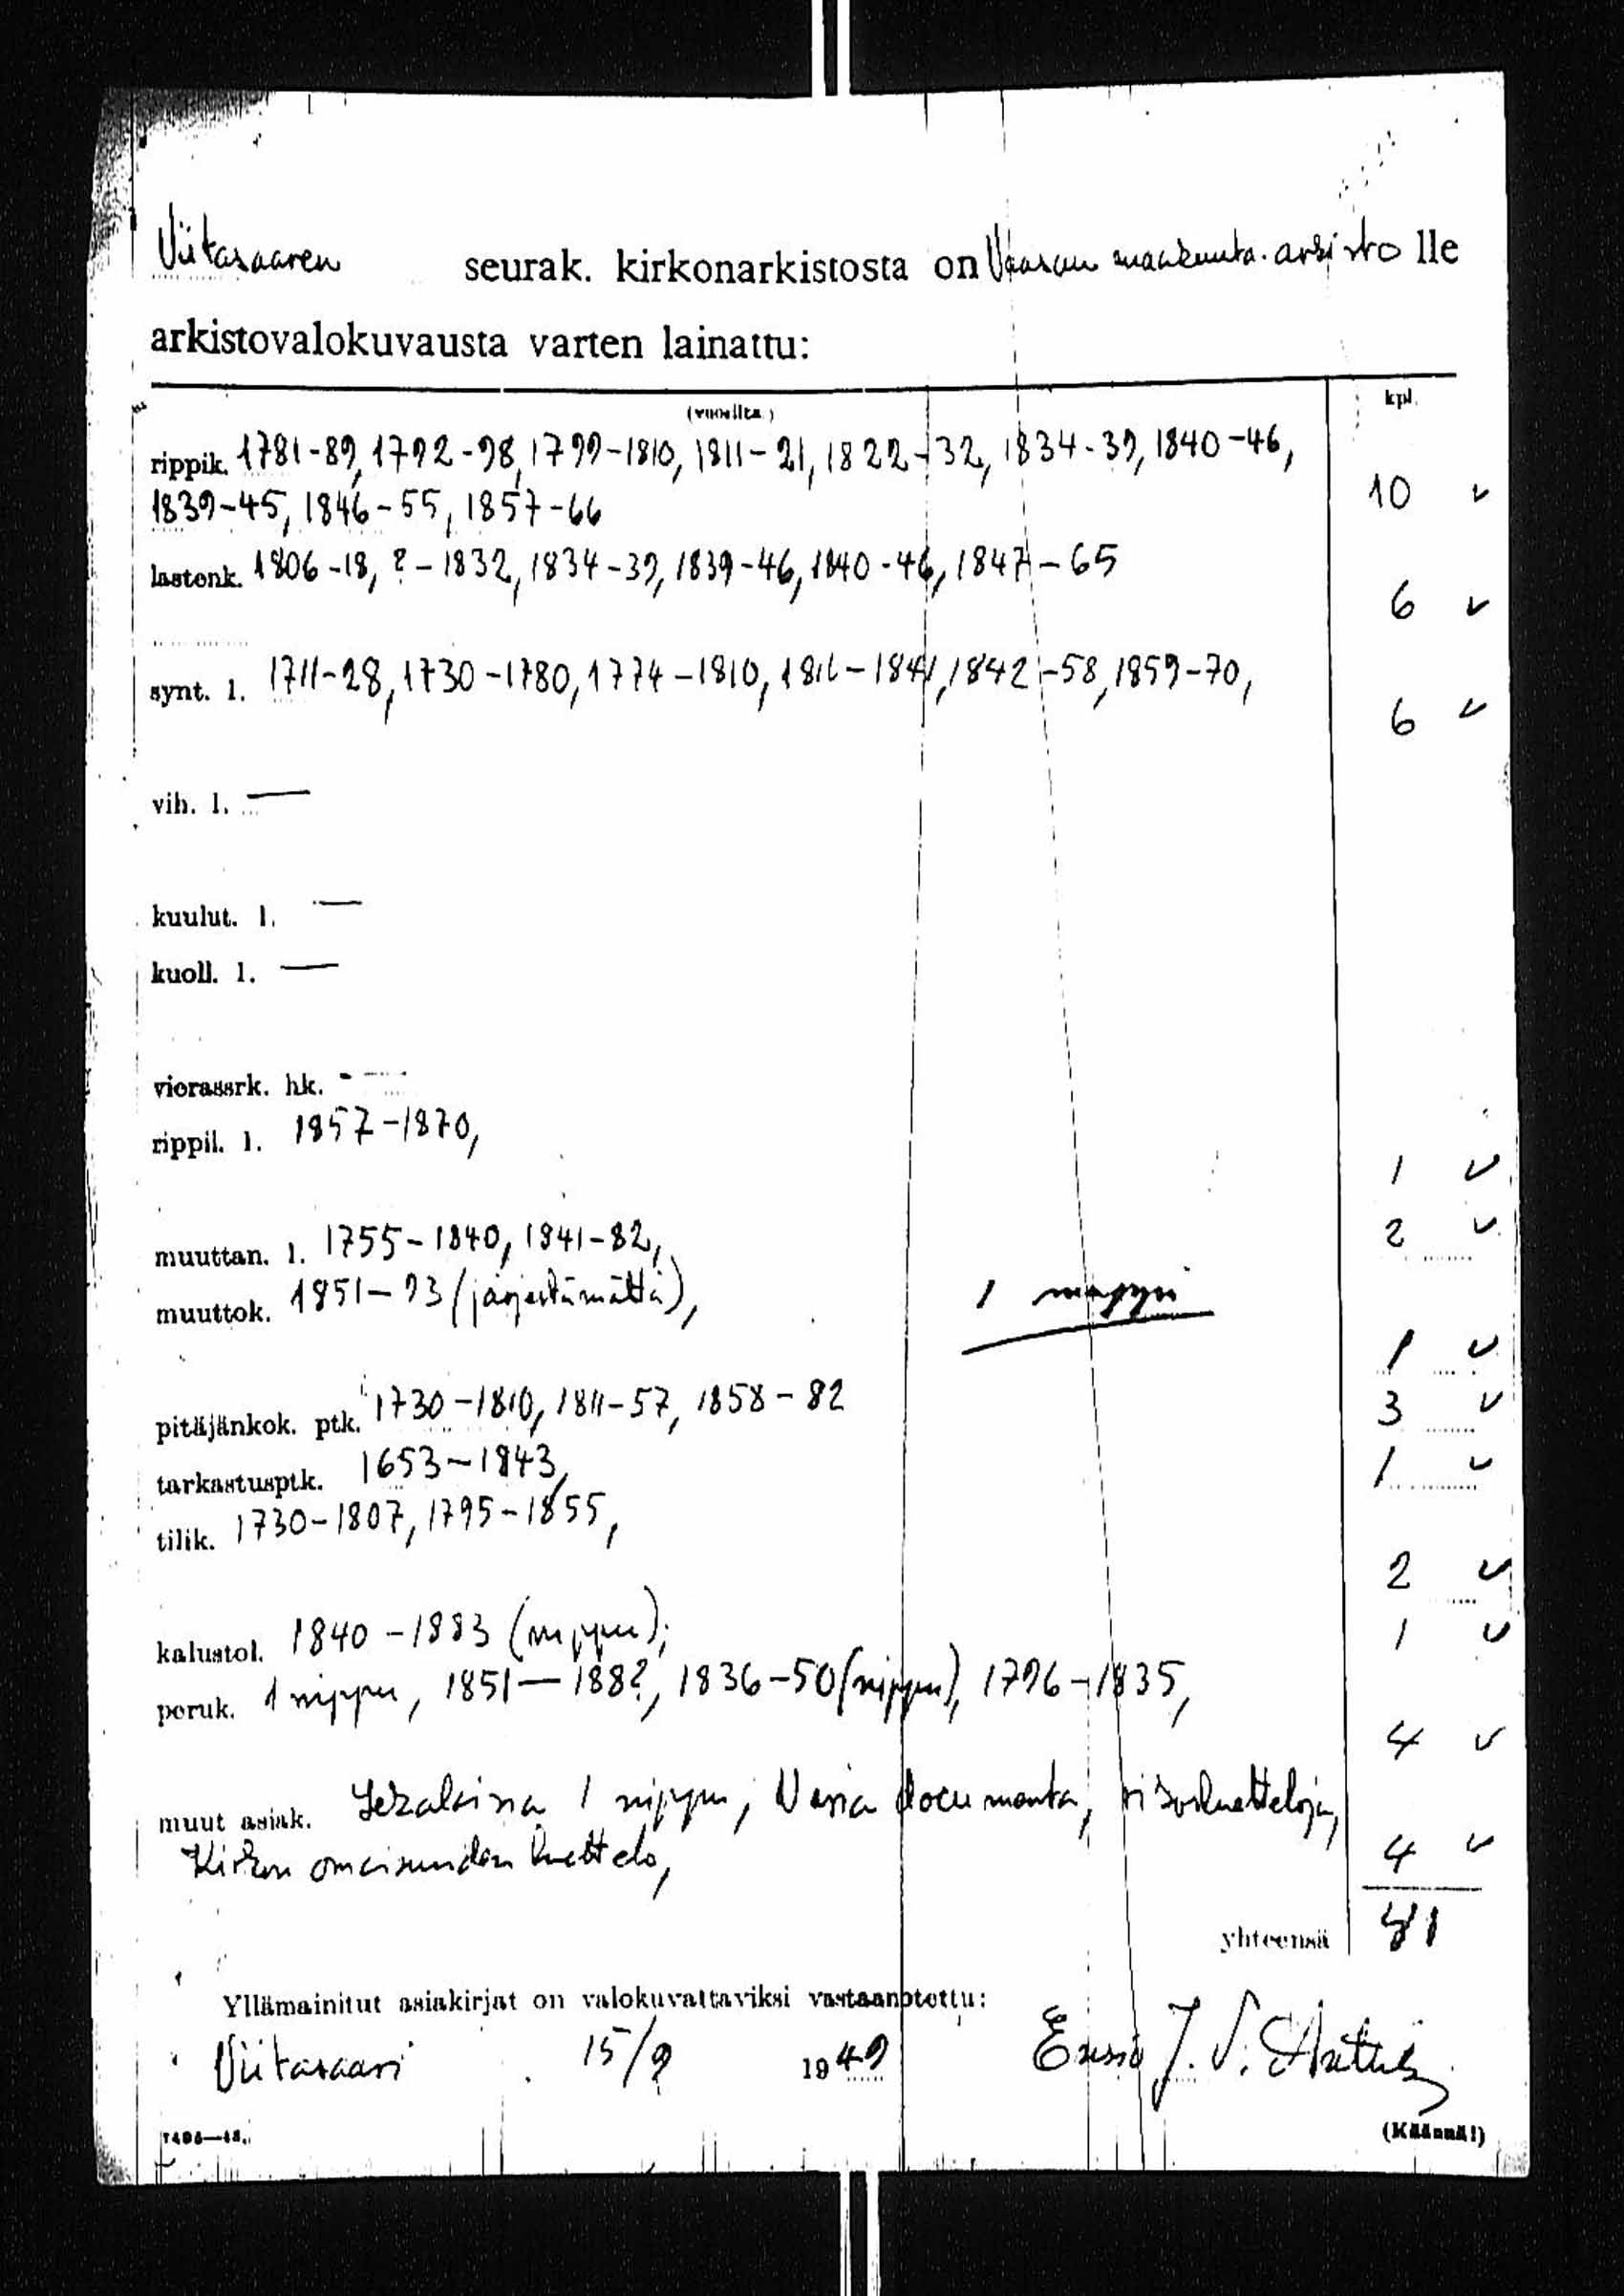 Viitasaaren seurak. kirkonarkistosta on Vaasan maakunta-arkisto lle
arkistovalokuvausta varten lainattu:
(vuosilta) kpl.
rippik. 1781-89, 1792-98, 1799-1810, 1811-21, 1822-32, 1834-39, 1840-46,
1839-45, 1846-55, 1857-66 10 ✓
lastenk. 1806-18, ?-1832, 1834-39, 1839-46, 1840-46, 1847-65
6 ✓
synt. l. 1711-28, 1730-1780, 1774-1810, 1811-1841, 1842-58, 1859-70,
6 ✓
vih. l. —
kuulut. l. —
kuoll. l. —
vierassrk. hk. -
rippil. l. 1857-1870,
1 ✓
muuttan. l. 1755-1840, 1841-82, 2 ✓
muuttok. 1851-93 (järjestämättä), 1 mappi
1 ✓
pitäjänkok. ptk. 1730-1810, 1811-57, 1858-82 3 ✓
tarkastusptk. 1653-1843, 1 ✓
tilik. 1730-1807, 1795-1855,
2 ✓
kalustol. 1840-1883 (nippu); 1 ✓
peruk. 1 nippu, 1851—188?, 1836-50 (nippu), 1796-1835,
4 ✓
muut asiak. Sekalaisia 1 nippu, Varia documenta, rikosluetteloja,
Kirkon omaisuuden luettelo, 4 ✓
yhteensä 41
Yllämainitut asiakirjat on valokuvattaviksi vastaanotettu:
Viitasaari 15/9 1949 J. V.
7496—48. (Käännä!)